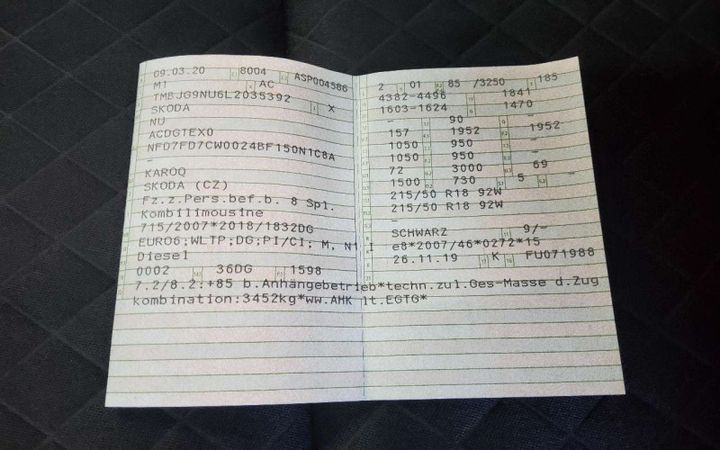 09.03.20 8004 ASP004586
M1 AC
TMBJG9NU6L2035392
SKODA X
NU
ACDG1EX0
NFD7FD7CW0024BF150N1C8A
–
KAROQ
SKODA (CZ)
Fz.z.Pers.bef.b. 8 Spl.
Kombilimousine
715/2007*2018/1832DG
EURO6;WLTP;DG;PI/CI; M, N1 I
Diesel
0002 36DG 1598
2 01 85 /3250 185
4382-4496 1841
1603-1624 1470
90 –
157 1952 1952
1050 950 –
1050 950 –
72 3000 69
1500 730 5 –
215/50 R18 92W
215/50 R18 92W
–
SCHWARZ 9/–
e8*2007/46*0272*15
26.11.19 K FU071988
7.2/8.2:+85 b.Anhängebetrieb*techn.zul.Ges-Masse d.Zug
kombination:3452kg*ww.AHK lt.EGTG*